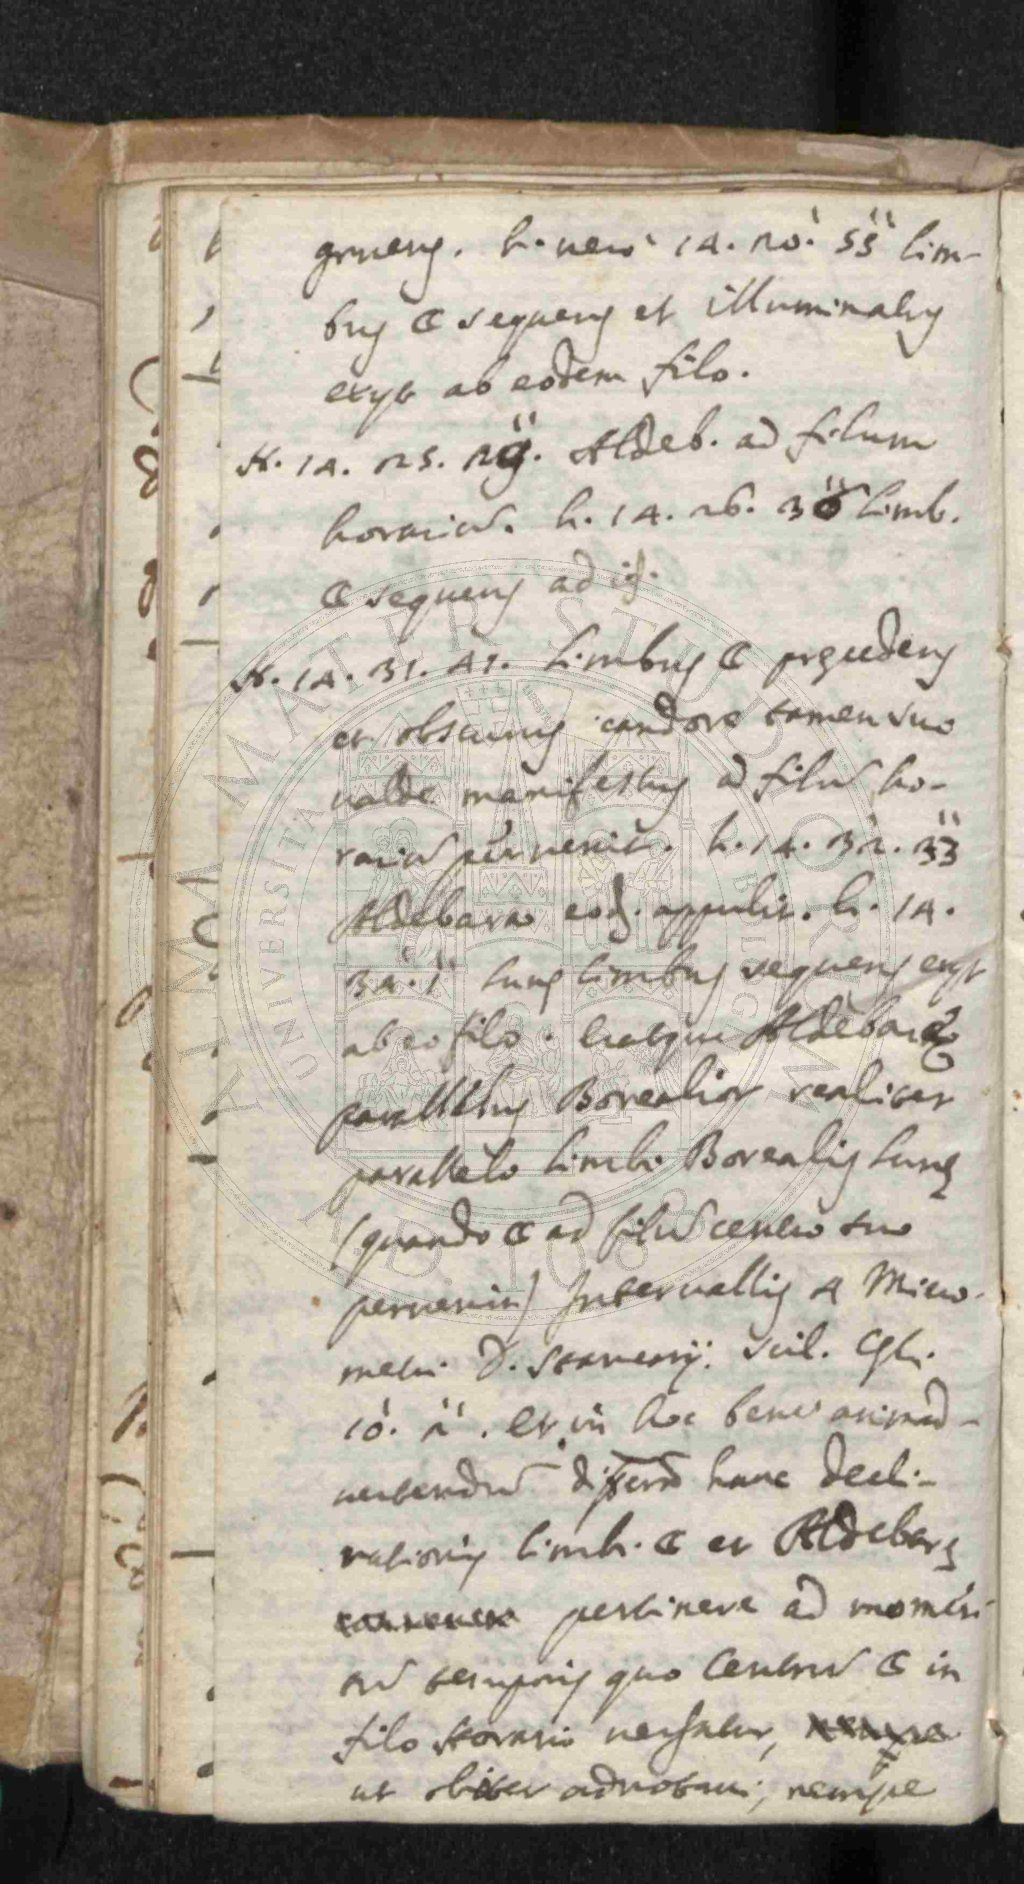 gruens. h. vero 14. 20.' 55'' lim-
bus ☾ sequens et illuminatus
exyt ab eodem filo.
H. 14. 25. 29''. Aldeb. ad filum
horariũ. h. 14. 26. 30'' limb.
☾ sequens ad id.
H. 14. 31. 41. Limbus ☾ precedens
et obscurus candore tamen suo
valde manifestus ad filũ ho-
rariũ pervenit. h. 14. 32. 33''
Aldebarã eod. appulit. h. 14.
34.' 1'' lune limbus sequens exyt
ab eo filo. eratque Aldebarã
parallelus Borealior realiter
parallelo limbi Borealis lune
(quando ☾ ad filũ centro suo
pervenit) Intervallis 4 Micro-
metri D. Stancarij. scil. Csh.
10.' 2''. et in hoc bene animad-
vertendũ differã hanc decli-
nationis limbi ☾ et Aldebare
pertinere ad momen-
tũ temporis quo Centrũ ☾ in
filo Horario versatur,
ut obiter adnotavi, nempe
ALMA MATER STUDIORUM
UNIVERSITA DI BOLOGNA
A.D. 1088